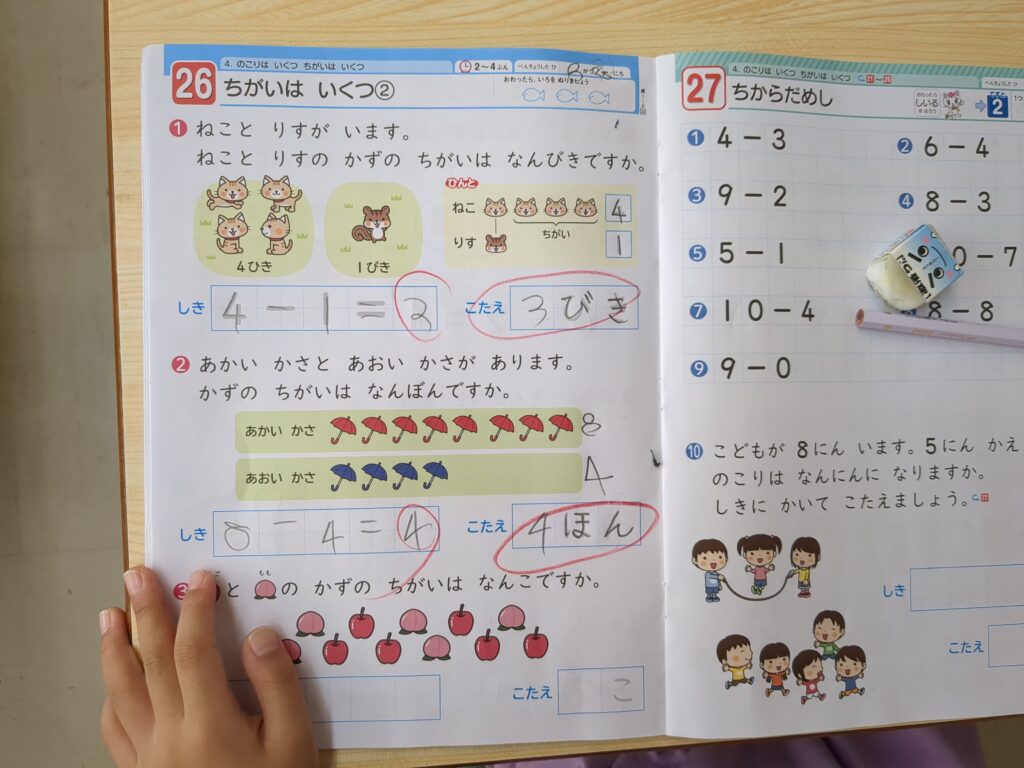 4. のこりは いくつ ちがいは いくつ
2~4ぷん
べんきょうした ひ
がつ
にち
26
ちがいは いくつ②
おわったら、いろを ぬりましょう
1 ねこと りすが います。
ねこと りすの かずの ちがいは なんびきですか。
4ひき
1ぴき
ひんと
ねこ 4
ちがい
りす 1
しき 4-1=3
こたえ 3びき
2 あかい かさと あおい かさが あります。
かずの ちがいは なんぼんですか。
あかい かさ 8
あおい かさ 4
しき 8-4=4
こたえ 4ほん
3 と もも の かずの ちがいは なんこですか。
こたえ こ
4. のこりは いくつ ちがいは いくつ 21~26
べんきょうした ひ
27
ちからだめし
おわったら
しいる
を はろう
2
1 4-3
2 6-4
3 9-2
4 8-3
5 5-1
0-7
7 10-4
8-8
9 9-0
10 こどもが 8にん います。5にん かえ
のこりは なんにんに なりますか。
しきに かいて こたえましょう。22
しき
こたえ